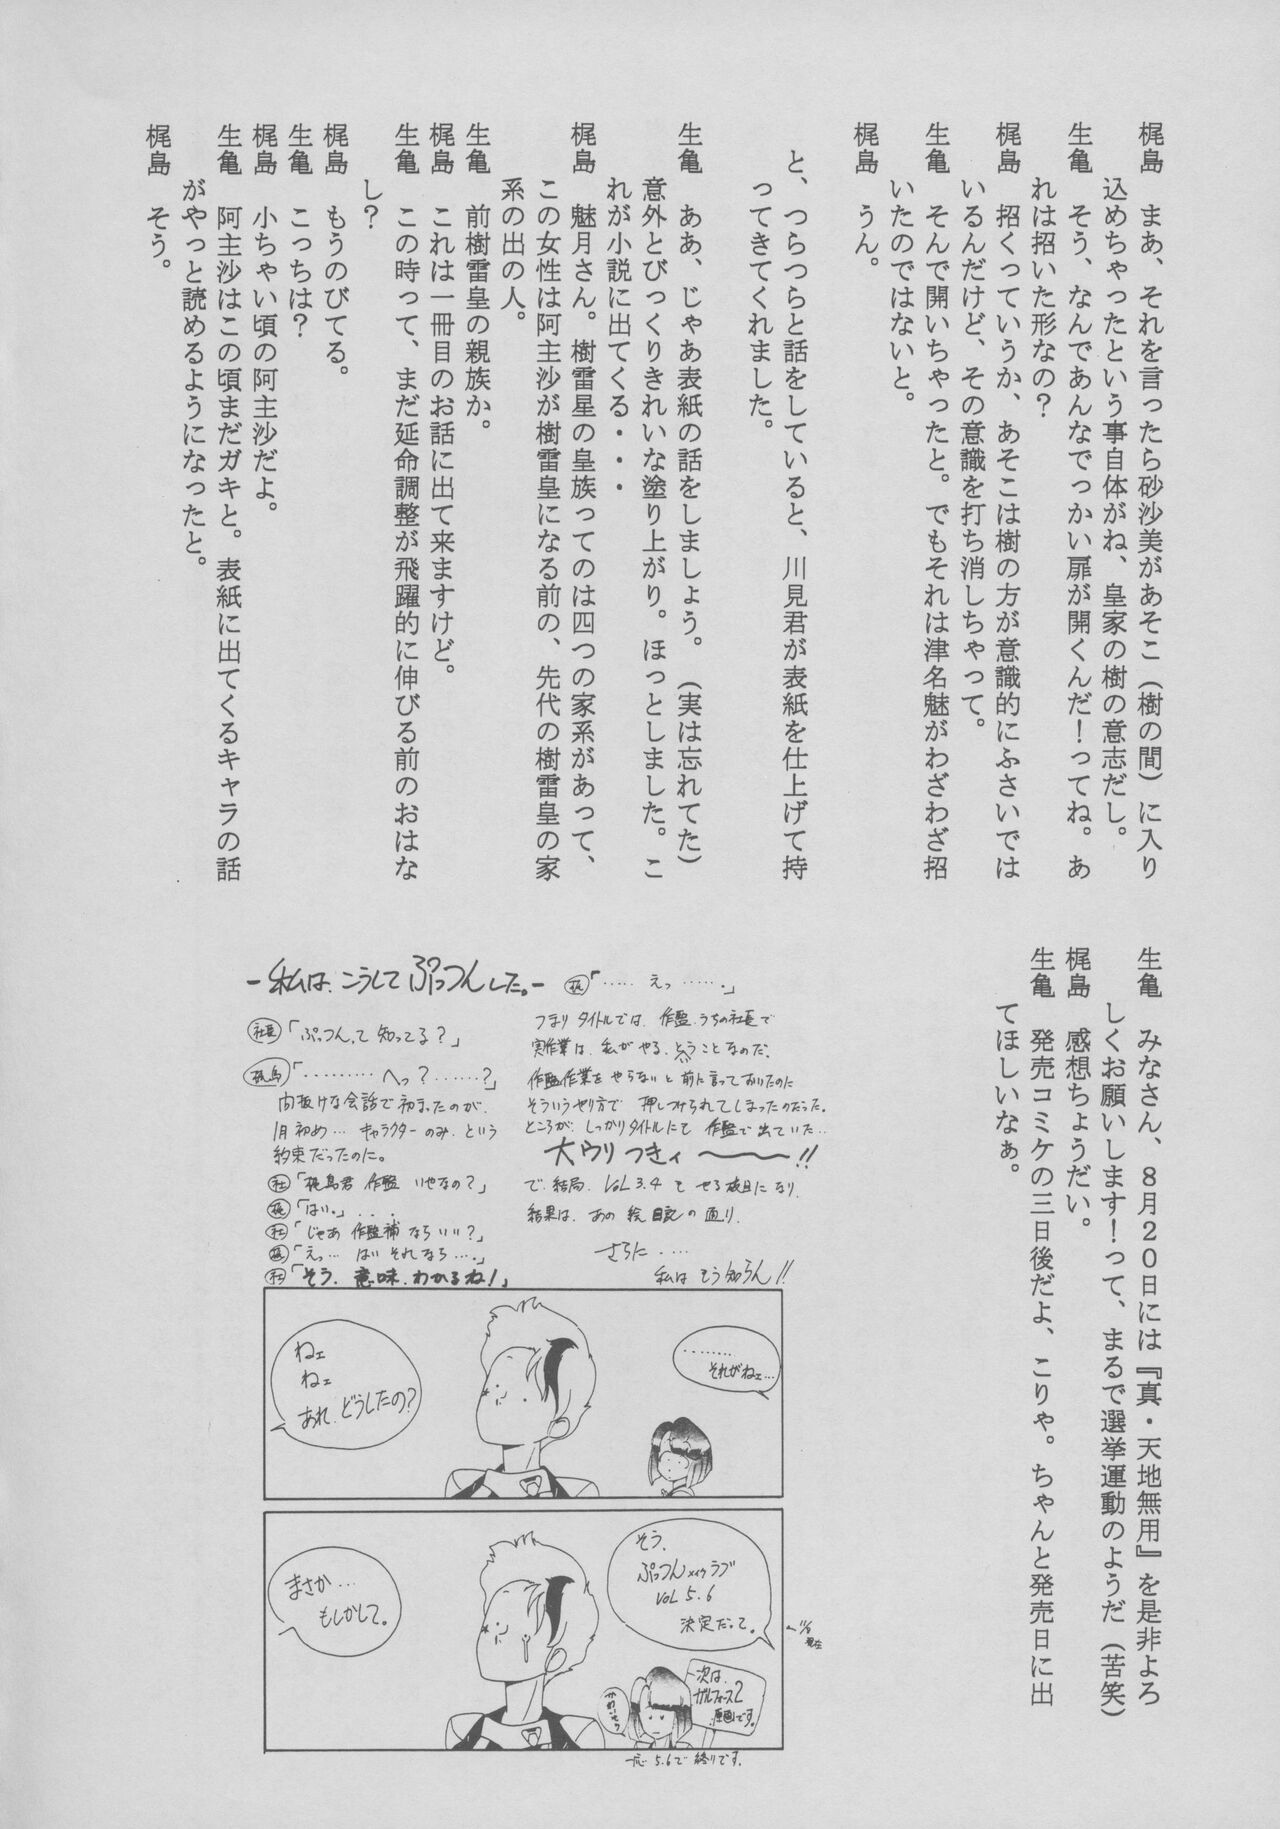 梶島　まあ、それを言ったら砂沙美があそこ（樹の間）に入り
込めちゃったという事自体がね、皇家の樹の意志だし。
生亀　そう、なんであんなでっかい扉が開くんだ！ってね。あ
れは招いた形なの？
梶島　招くっていうか、あそこは樹の方が意識的にふさいでは
いるんだけど、その意識を打ち消しちゃって。
生亀　そんで開いちゃったと。でもそれは津名魅がわざわざ招
いたのではないと。
梶島　うん。
と、つらつらと話をしていると、川見君が表紙を仕上げて持
ってきてくれました。
生亀　ああ、じゃあ表紙の話をしましょう。（実は忘れてた）
意外とびっくりきれいな塗り上がり。ほっとしました。こ
れが小説に出てくる・・・
梶島　魅月さん。樹雷星の皇族ってのは四つの家系があって、
この女性は阿主沙が樹雷皇になる前の、先代の樹雷皇の家
系の出の人。
生亀　前樹雷皇の親族か。
梶島　これは一冊目のお話に出て来ますけど。
生亀　この時って、まだ延命調整が飛躍的に伸びる前のおはな
し？
梶島　もうのびてる。
生亀　こっちは？
梶島　小ちゃい頃の阿主沙だよ。
生亀　阿主沙はこの頃まだガキと。表紙に出てくるキャラの話
がやっと読めるようになったと。
梶島　そう。
生亀　みなさん、８月２０日には『真・天地無用』を是非よろ
しくお願いします！って、まるで選挙運動のようだ（苦笑）
梶島　感想ちょうだい。
生亀　発売コミケの三日後だよ、こりゃ。ちゃんと発売日に出
てほしいなぁ。
－私は、こうしてぷっつんした。－
社長「ぷっつん、て知ってる？」
梶島「………へっ？……？」
間抜けな会話で初まったのが、
1月初め… キャラクターのみ、という
約束だったのに。
社「梶島君 作監 いやなの？」
梶「はい。」...
社「じゃあ 作監補ならいい？」
梶「えっ… はい それなら….」
社「そう、意味、わかるね！」
梶「…… えっ …….」
つまり タイトルでは、作監、うちの社長で
実作業は、私がやる、とうことなのだ。
作監作業をやらないと前に言っておいたのに
そういうやり方で 押しつけられてしまったのだった。
ところが、しっかりタイトルにて 作監で出ていた…
大ウリつきィ～～～!!
で、結局、VOL 3.4 も やる破目になり、
結果は、あの 絵日記の通り、
さらに ....
私は もう知らん!!
………
それがねェ…
ねェ
ねェ
あれ、どうしたの？
そう、
ぷっつんメイクラブ
VOL 5.6
決定だって。
まさか…
もしかして。
次は、
ガルフォース2
原画です。
一応 5.6で 終りです。